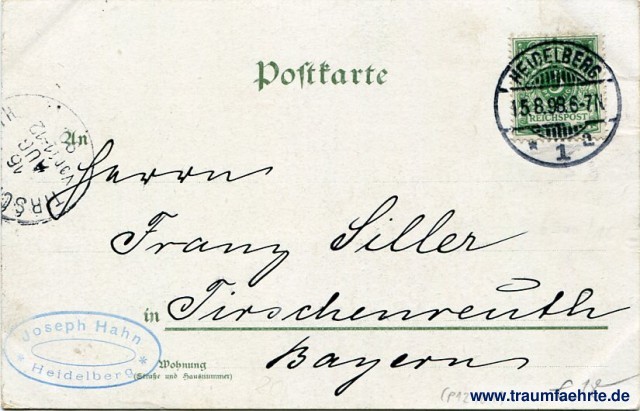 Postkarte
HEIDELBERG
15.8.98.6-7N
REICHSPOST
* 1 a
16
AUG
Vor. 11-12
An
Herrn
Franz Siller
in Tirschenreuth
Bayern
Wohnung
(Straße und Hausnummer)
Joseph Hahn
* Heidelberg *
www.traumfaehrte.de